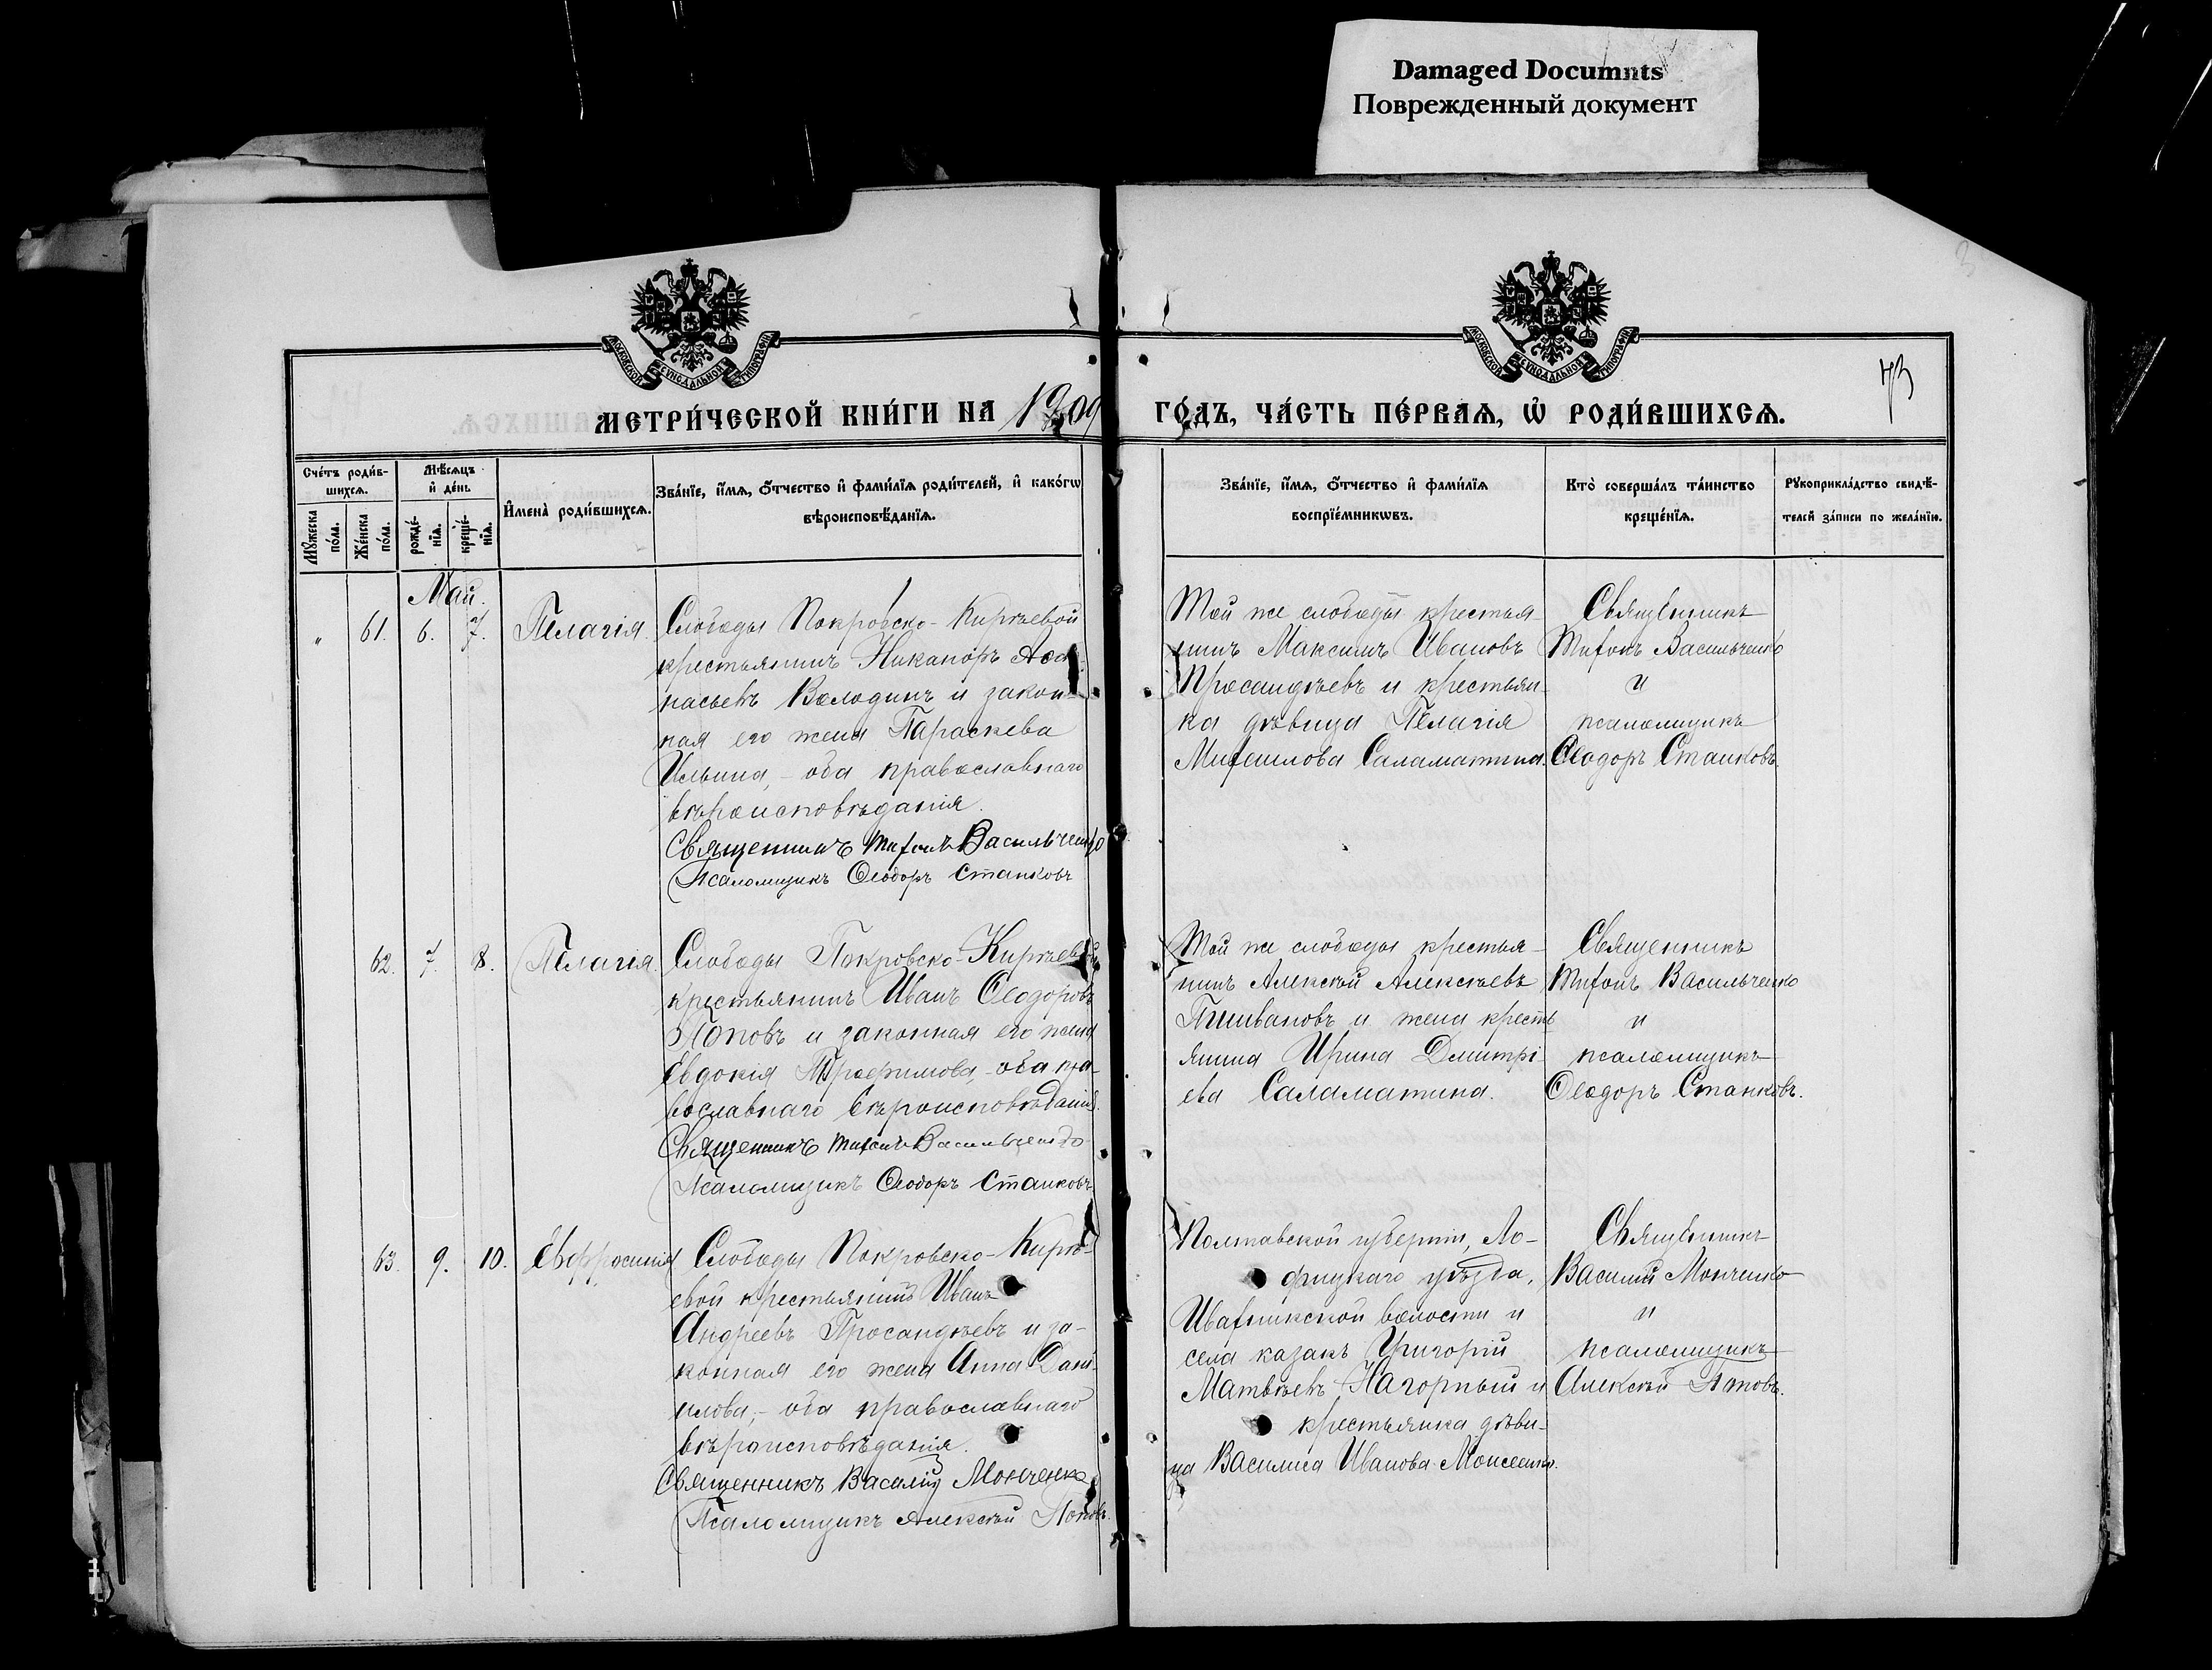 Damaged Documnts
Поврежденный документ
МОСКОВСКОЙ СѴНОДАЛЬНОЙ ТИПОГРАФІИ
МОСКОВСКОЙ СѴНОДАЛЬНОЙ ТИПОГРАФІИ
73
МЕТРИ́ЧЕСКОЙ КНИ́ГИ НА 1909 ГО́ДЪ, ЧА́СТЬ ПЕ́РВАЯ, Ѡ҆ РОДИ́ВШИХСЯ.
Сче́тъ роди́в-
шихся.
Мꙋ́жеска по́ла.
Же́нска по́ла.
Мѣ́сяцъ
и҆ де́нь
рожде́-
нїя.
креще́-
нїя.
И҆мена̀ роди́вшихся.
Зва́нїе, и҆́мя, ѻ҆́тчество и҆ фами́лїя роди́телей, и҆ како́гѡ
вѣроисповѣ́данїя.
Зва́нїе, и҆́мя, ѻ҆́тчество и҆ фами́лїя
воспрїе́мникѡвъ.
Кто̀ соверша́лъ та́инство
креще́нїя.
Рꙋкоприкла́дство свидѣ́-
телей за́писи по жела́нїю.
Май.
" 61. 6. 7. Пелагія.
Слободы Покровско-Кирѣевой
крестьянинъ Никаноръ Аѳа-
насьевъ Володинъ и закон-
ная его жена Параскева
Ильина, - оба православнаго
вѣроисповѣданія.
Священникъ Тифонъ Васильченко
Псаломщикъ Ѳеодоръ Станковъ
Той же слободы крестья-
нинъ Максимъ Ивановъ
Просандѣевъ и крестьян-
ка дѣвица Пелагія
Михаилова Саламатина.
Священникъ
Тифонъ Васильченко
и
псаломщикъ
Ѳеодоръ Станковъ.
62. 7. 8. Пелагія.
Слободы Покровско-Кирѣевой
крестьянинъ Иванъ Ѳеодоровъ
Поповъ и законная его жена
Евдокія Трофимова, - оба пра-
вославнаго вѣроисповѣданія.
Священникъ Тифонъ Васильченко
Псаломщикъ Ѳеодоръ Станковъ
Той же слободы крестья-
нинъ Алексѣй Алексѣевъ
и жена кресть
янина Ирина Дмитрі-
ева Саламатина.
Священникъ
Тифонъ Васильченко
и
псаломщикъ
Ѳеодоръ Станковъ.
63. 9. 10. Евфросинія
Слободы Покровско-Кирѣ-
евой крестьянинъ Иванъ
Андреевъ Просандѣевъ и за-
конная его жена Анна Дані-
илова, - оба православнаго
вѣроисповѣданія.
Священникъ Василій Монченко
Псаломщикъ Алексѣй Поповъ.
Полтавской губерніи, Ло-
фицкаго уѣзда,
волости и
села казакъ Григорій
Матвѣевъ Нагорный и
крестьянка дѣви-
ца Василиса Иванова Моисеенко.
Священникъ
Василій Монченко
и
псаломщикъ
Алексѣй Поповъ.